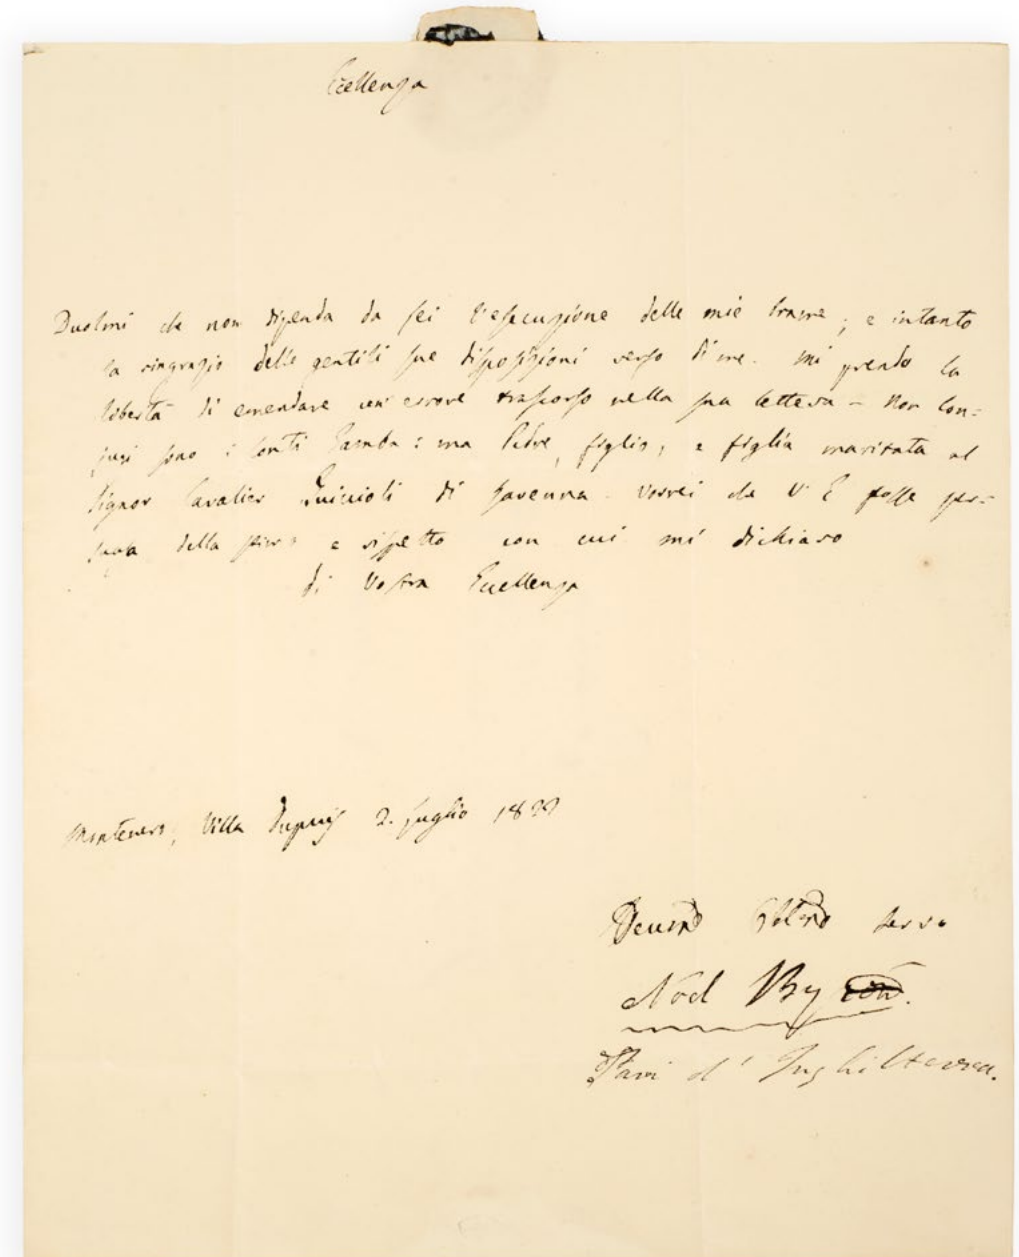 Eccellenza
Duolmi che non dipenda da Lei l'esecuzione delle mie brame; e intanto
la ringrazio delle gentili sue disposizioni verso di me. Mi prendo la
libertà di emendare un'errore trascorso nella sua lettera – Non Con=
jugi sono i Conti Gamba: ma Padre, figlio, e figlia maritata al
Signor Cavalier Guiccioli di Ravenna. Vorrei che V. E. fosse per=
suasa della stima e rispetto con cui mi dichiaro
di Vostra Eccellenza
Montenero, Villa Dupuy 2. Luglio 1822
Devmo Obbmo servo
Noel Byron.
Pari d'Inghilterra.